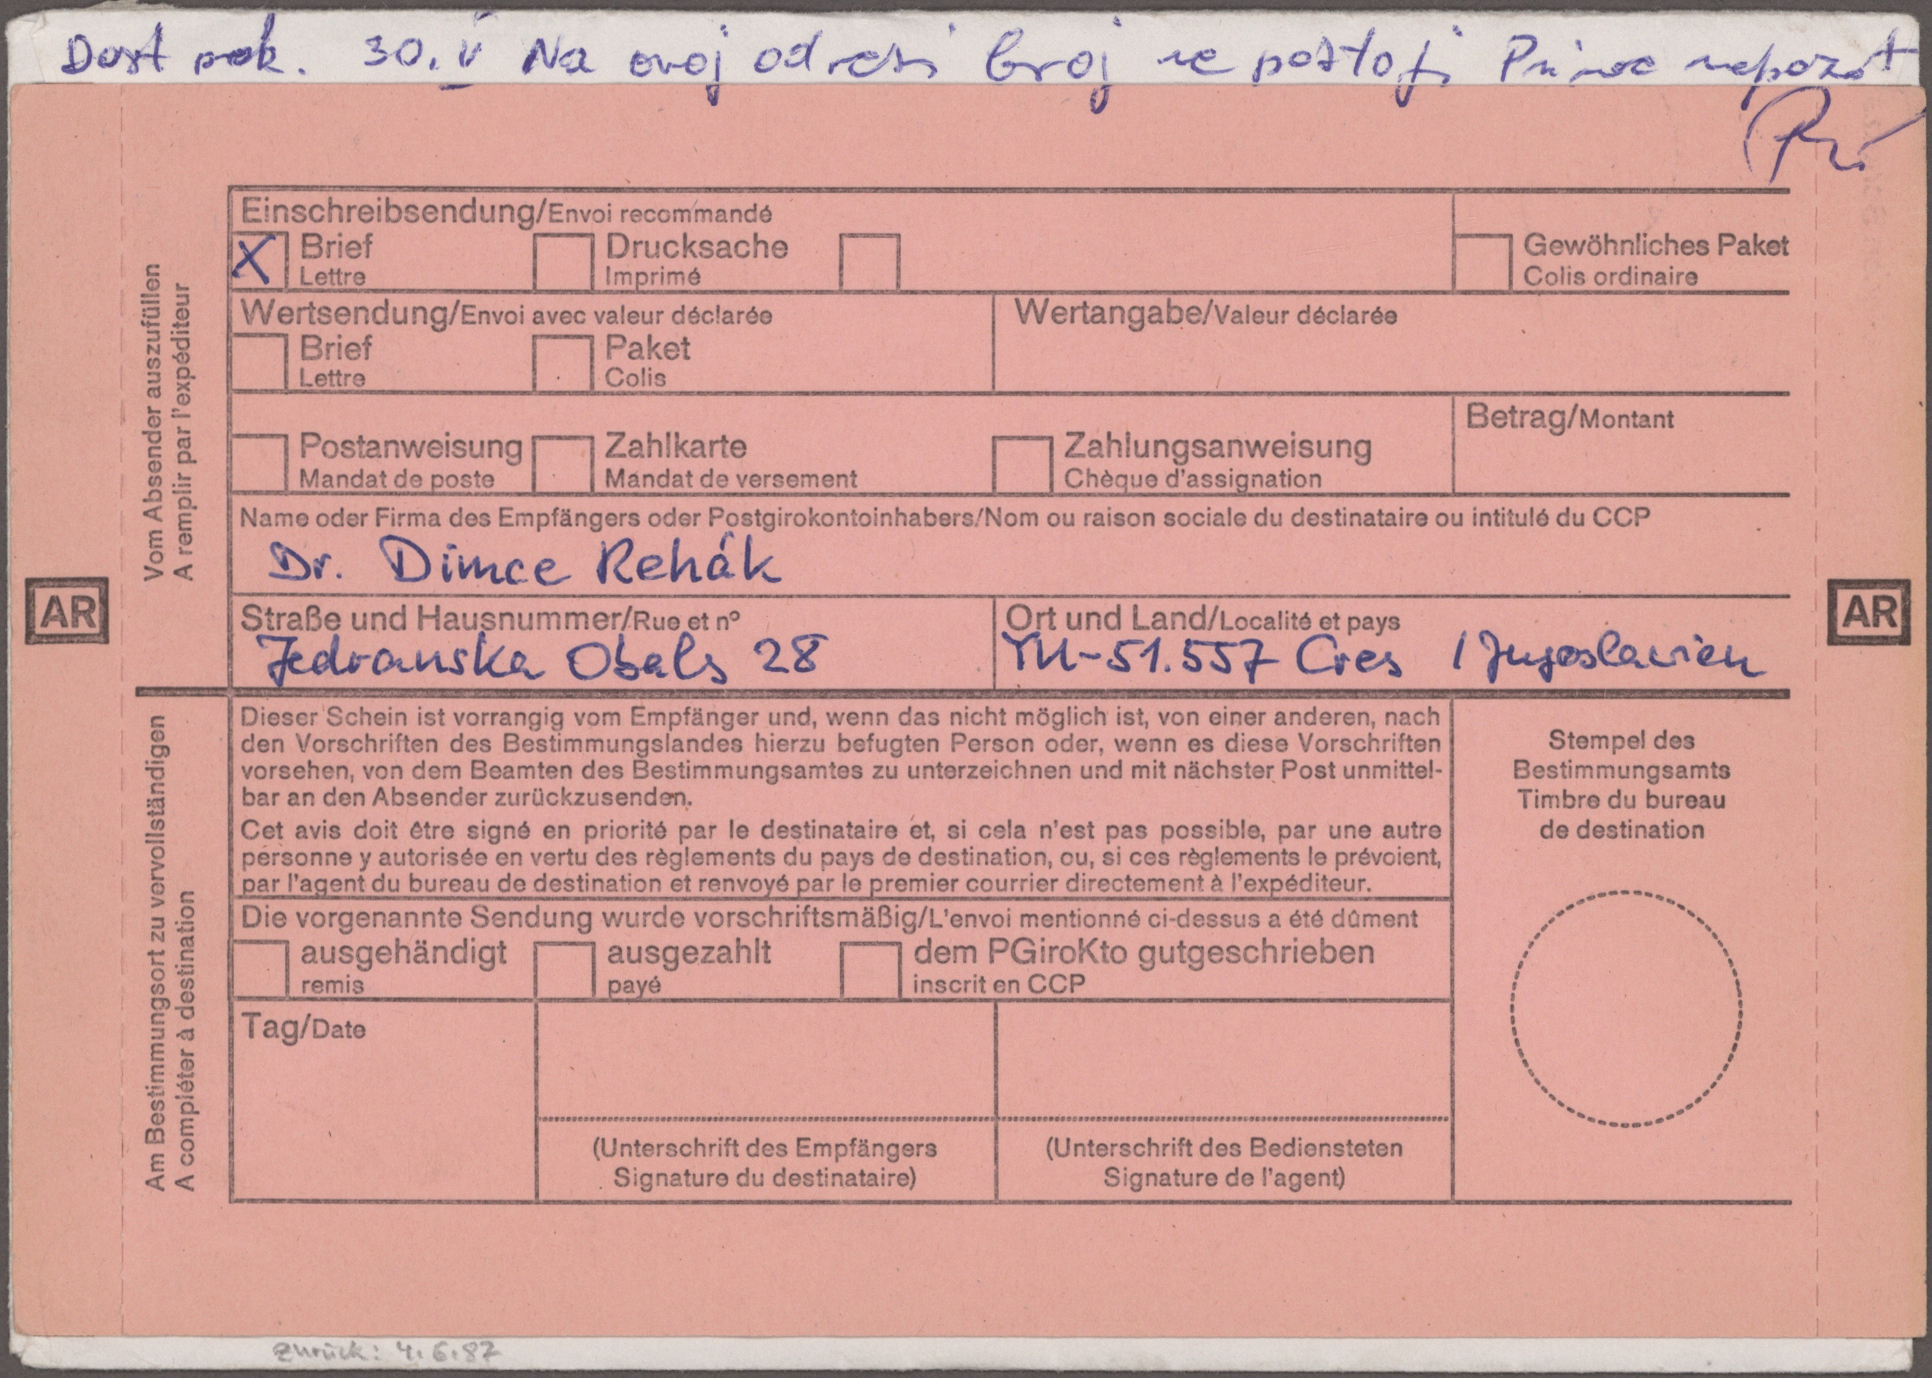 Dost pok. 30.V Na ovoj adresi broj ne postoji Primac nepoznat
Einschreibsendung/Envoi recommandé
X Brief Drucksache Gewöhnliches Paket
Lettre Imprimé Colis ordinaire
Wertsendung/Envoi avec valeur déclarée Wertangabe/Valeur déclarée
Brief Paket
Lettre Colis
Betrag/Montant
Postanweisung Zahlkarte Zahlungsanweisung
Mandat de poste Mandat de versement Chèque d'assignation
Name oder Firma des Empfängers oder Postgirokontoinhabers/Nom ou raison sociale du destinataire ou intitulé du CCP
Dr. Dimce Rehák
Straße und Hausnummer/Rue et nº Ort und Land/Localité et pays
Jedranska Obals 28 YU-51.557 Cres / Jugoslavien
Vom Absender auszufüllen
A remplir par l'expéditeur
AR
AR
Dieser Schein ist vorrangig vom Empfänger und, wenn das nicht möglich ist, von einer anderen, nach
den Vorschriften des Bestimmungslandes hierzu befugten Person oder, wenn es diese Vorschriften
vorsehen, von dem Beamten des Bestimmungsamtes zu unterzeichnen und mit nächster Post unmittel-
bar an den Absender zurückzusenden.
Cet avis doit être signé en priorité par le destinataire et, si cela n'est pas possible, par une autre
personne y autorisée en vertu des règlements du pays de destination, ou, si ces règlements le prévoient,
par l'agent du bureau de destination et renvoyé par le premier courrier directement à l'expéditeur.
Stempel des
Bestimmungsamts
Timbre du bureau
de destination
Die vorgenannte Sendung wurde vorschriftsmäßig/L'envoi mentionné ci-dessus a été dûment
ausgehändigt ausgezahlt dem PGiroKto gutgeschrieben
remis payé inscrit en CCP
Tag/Date
(Unterschrift des Empfängers (Unterschrift des Bediensteten
Signature du destinataire) Signature de l'agent)
Am Bestimmungsort zu vervollständigen
A compléter à destination
Zurück: 4.6.87